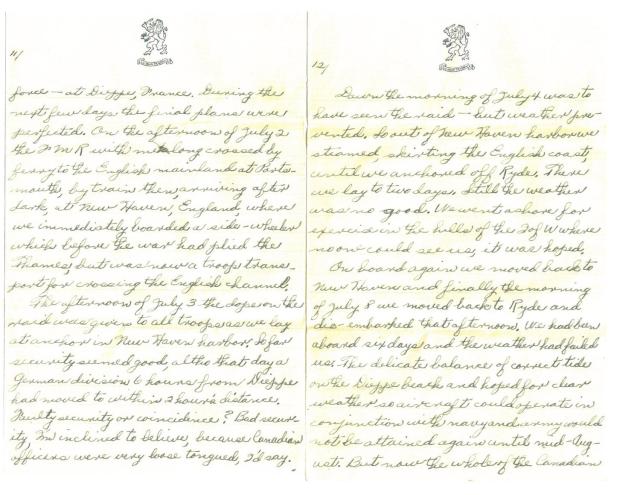 11/
force — at Dieppe, France. During the
next few days the final plans were
perfected. On the afternoon of July 2
the F M R with me along crossed by
ferry to the English mainland at Ports-
mouth, by train then, arriving after
dark, at New Haven, England where
we immediately boarded a side-wheeler
which before the war had plied the
Thames, but was now a troop trans-
port for crossing the English channel.
The afternoon of July 3 the dope on the
raid was given to all troops as we lay
at anchor in New Haven harbor. So far
security seemed good, altho that day a
German division 6 hours from Dieppe
had moved to within 2 hour's distance.
Faulty security or coincidence? Bad secur-
ity, I'm inclined to believe, because Canadian
officers were very loose tongued, I'd say.
12/
Dawn the morning of July 4 was to
have seen the raid — but weather pre-
vented. So out of New Haven harbor we
steamed skirting the English coast,
until we anchored off Ryde. There
we lay to two days. Still the weather
was no good. We went ashore for
exercise in the hills of the I of W where
no on could see us, it was hoped.
On board again we moved back to
New Haven and finally the morning
of July 8 we moved back to Ryde and
dis-embarked that afternoon. We had ben
aboard six days and the weather had faild
us. The delicate balance of correct tide
on the Dieppe beach and hoped for clear
weather so aircraft could operate in
conjunction with navy and army would
not be attained again until mid-Aug-
ust. But now the whole of the Canadian